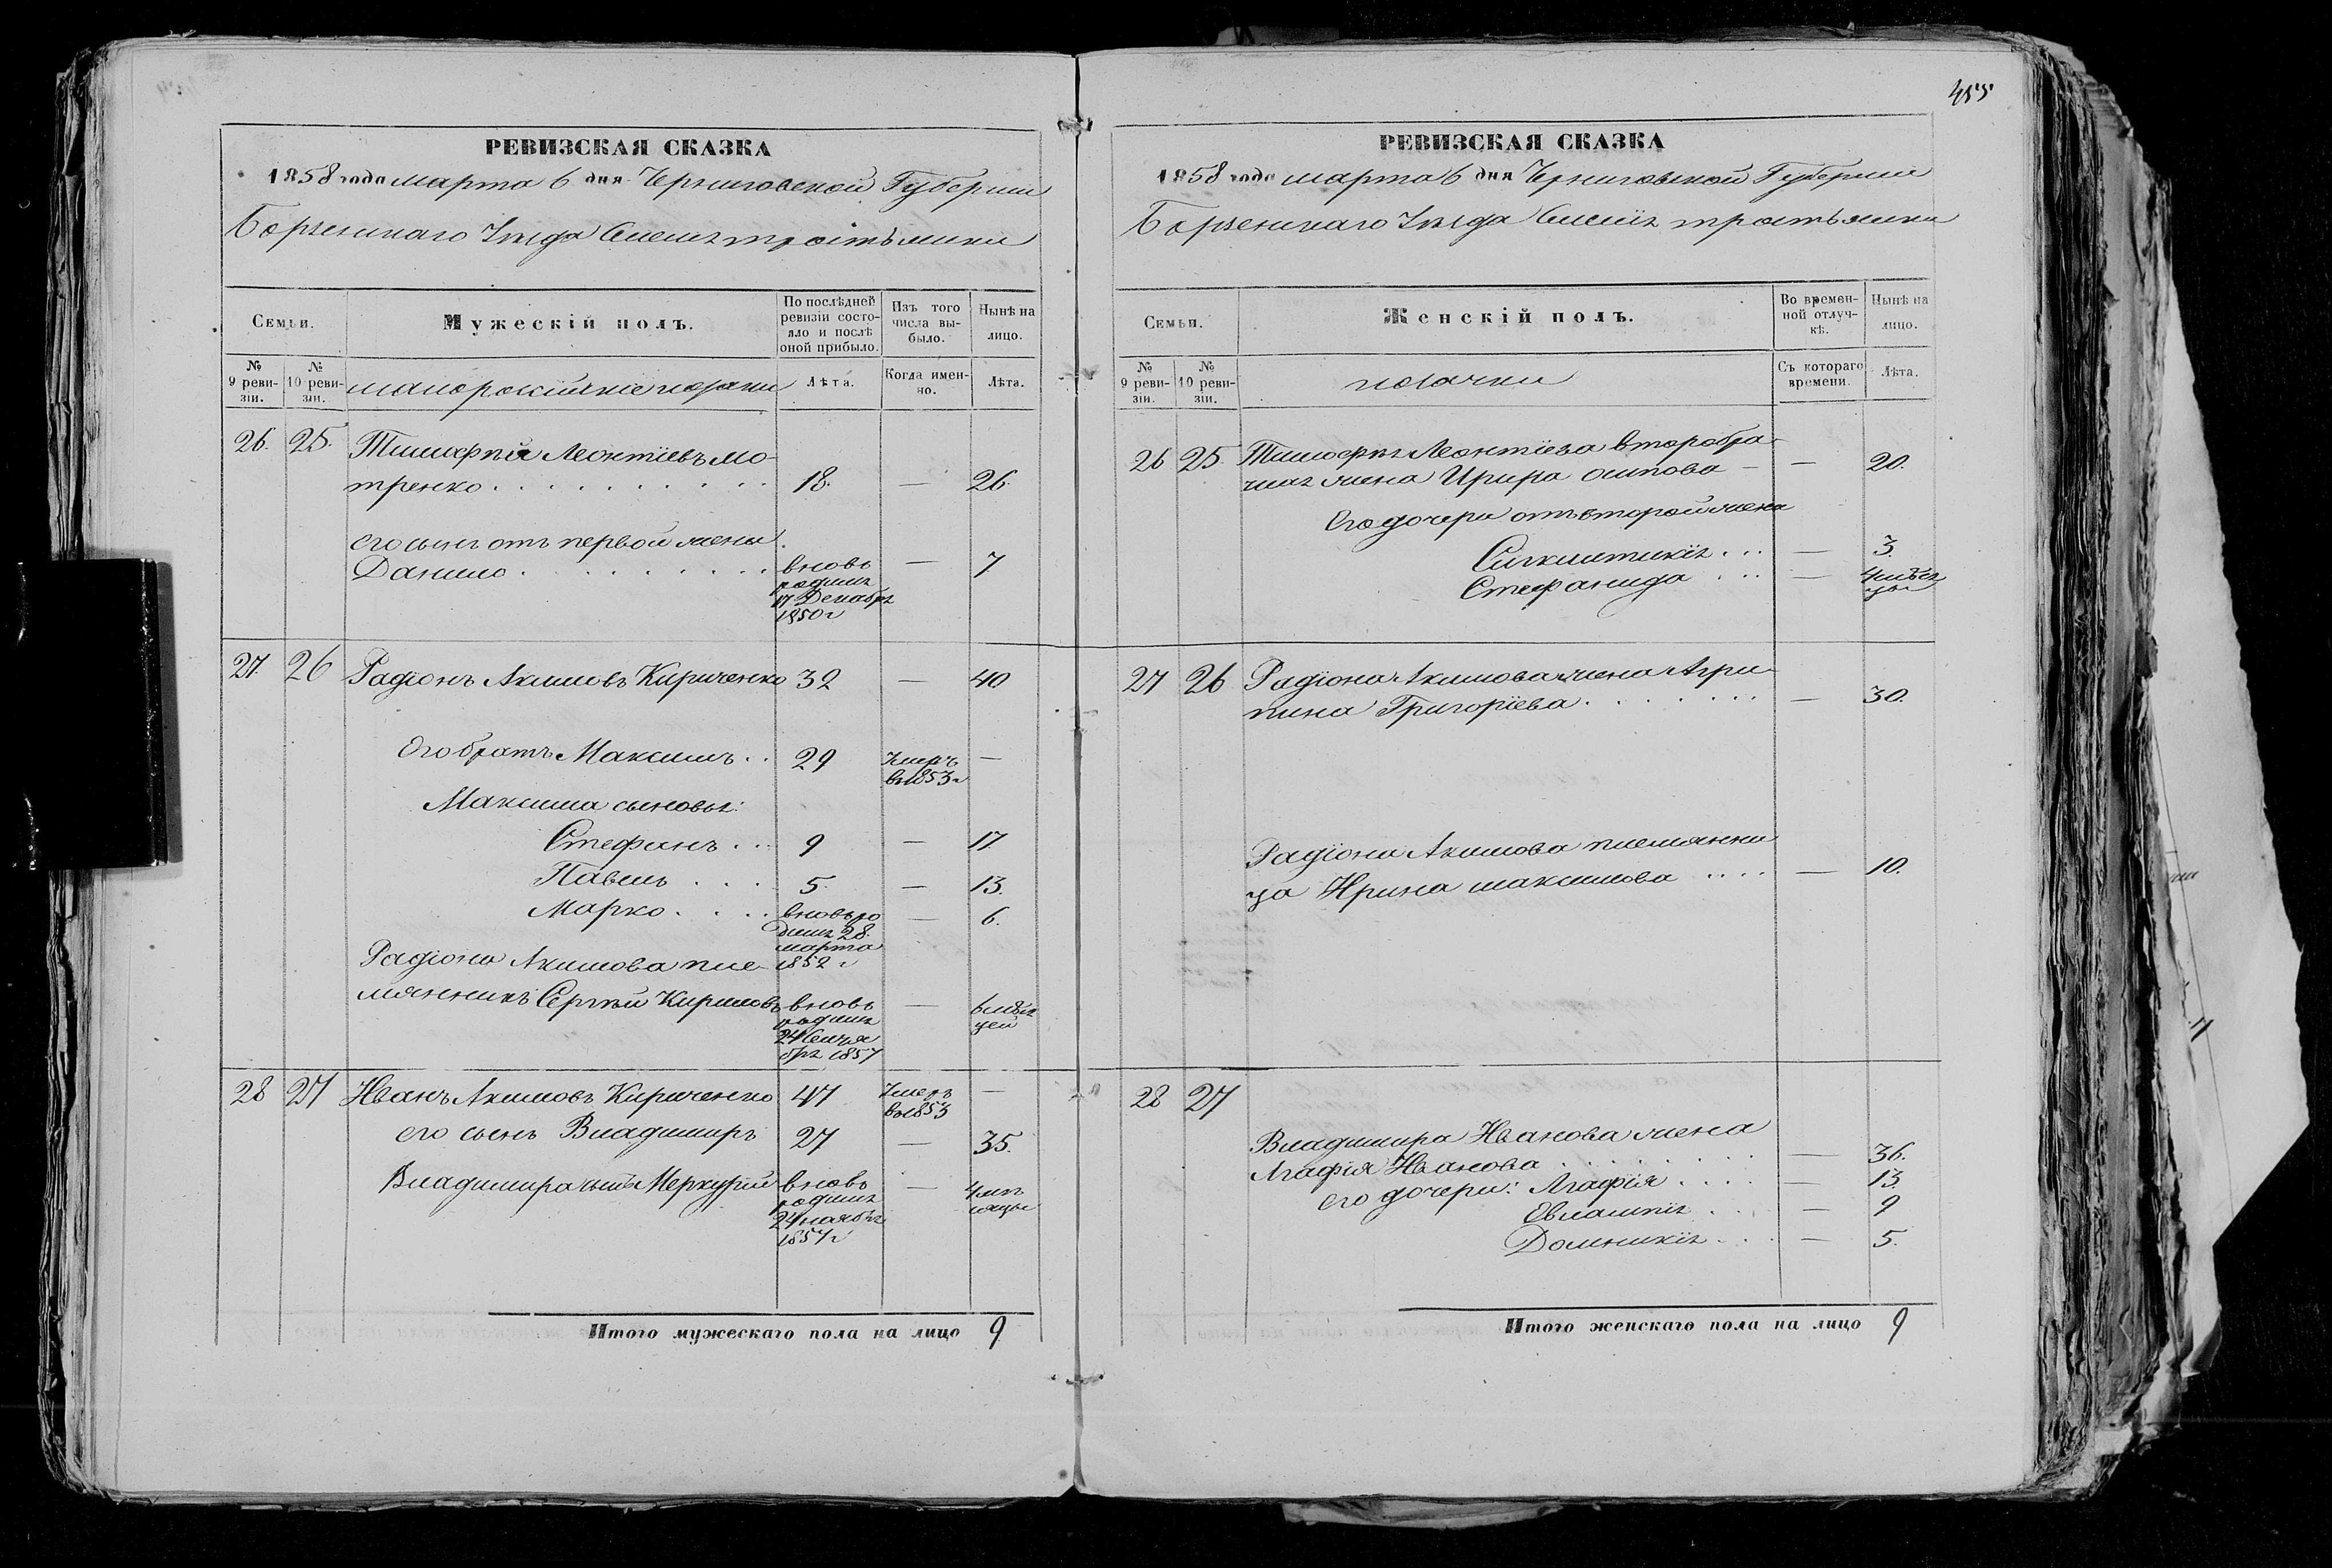 455
РЕВИЗСКАЯ СКАЗКА
1858 года марта 6 дня Черниговской Губернии
Борзенскаго Уѣзда тростьянки
Семьи.
Мужескій полъ.
По послѣдней ревизіи состояло и послѣ оной прибыло.
Изъ того числа выбыло.
Нынѣ на лицо.
№ 9 ревизіи.
№ 10 ревизіи.
малороссійскіе козаки
Лѣта.
Когда именно.
Лѣта.
26. 25. Тимофей Леонтіевъ Мо-
тренко 18. — 26.
его сынъ отъ первой жены
Данило вновь — 7
родил
17 Декабр
1850 г
27. 26 Радіонъ Акимовъ Кириченко 32 — 40
Его братъ Максимъ 29 Умеръ —
в 1853 г
Максима сыновья:
Стефанъ 9 — 17
Павелъ 5. — 13.
Марко вновь ро — 6.
дил 28.
марта
Радіона Акимова пле- 1852 г
мянникъ Сергѣй Кириловъ вновь — 6 мѣся
родил цей
24 Сентя
бр 1857
28 27 Иванъ Акимовъ Кириченко 47 Умеръ —
в 1853
его сынъ Владимиръ 27 — 35.
Владимира сынъ Меркурій вновь — 4 мѣ
родил сяцы
24 ноябр
1857 г
Итого мужескаго пола на лицо 9
РЕВИЗСКАЯ СКАЗКА
1858 года марта 6 дня Черниговской Губернии
Борзенскаго Уѣзда тростьянки
Семьи.
Женскій полъ.
Во временной отлучкѣ.
Нынѣ на лицо.
№ 9 ревизіи.
№ 10 ревизіи.
козачки
Съ котораго времени.
Лѣта.
26 25. Тимофея Леонтіева второбра-
чная жена Ирира Осипова — 20.
Его дочери отъ второй жены
— 3.
Стефанида — 4 мѣся
цы
27 26 Радіона Акимова жена Агри-
пина Григоріева — 30.
Радіона Акимова племянни
ца Ирина максимова — 10.
28 27
Владимира Иванова жена
Агафія Иванова — 36.
его дочери: Агафія — 13.
Евлампія — 9
Домникія — 5.
Итого женскаго пола на лицо 9